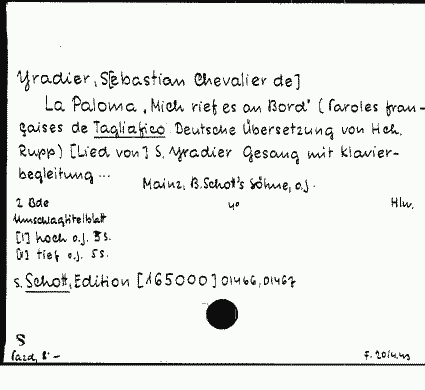 Yradier, S[ebastian Chevalier de]
La Paloma. „Mich rief es an Bord" (Paroles fran-
çaises de Tagliafico. Deutsche Übersetzung von Hch.
Rupp) [Lied von] S. Yradier Gesang mit Klavier-
begleitung ...
Mainz, B. Schott's Söhne, o.J.
2 Bde 4° Hlw.
Umschlagtitelblatt
[1] hoch o.J. 5 S.
[2] tief o.J. 5 S.
s. Schott, Edition [165000] 01466, 01467
S